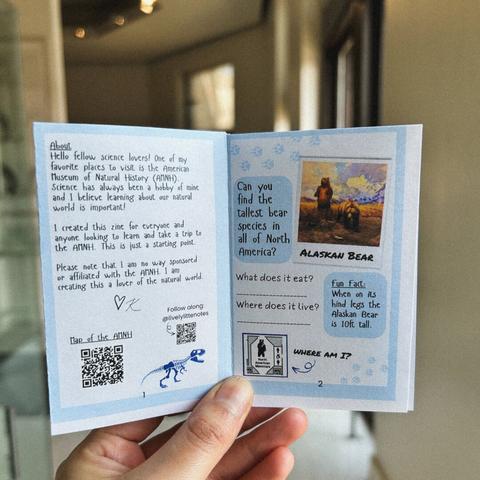 About
Hello fellow science lovers! One of my
favorite places to visit is the American
Museum of Natural History (AMNH).
Science has always been a hobby of mine
and I believe learning about our natural
world is important!
I created this zine for everyone and
anyone looking to learn and take a trip to
the AMNH. This is just a starting point.
Please note that I am no way sponsored
or affiliated with the AMNH. I am
creating this a lover of the natural world.
K
Follow along:
@livelylittenotes
Map of the AMNH
1
Can you
find the
tallest bear
species in
all of North
America?
ALASKAN BEAR
What does it eat?
Where does it live?
Fun Fact:
When on its
hind legs the
Alaskan Bear
is 10ft tall.
WHERE AM I?
2